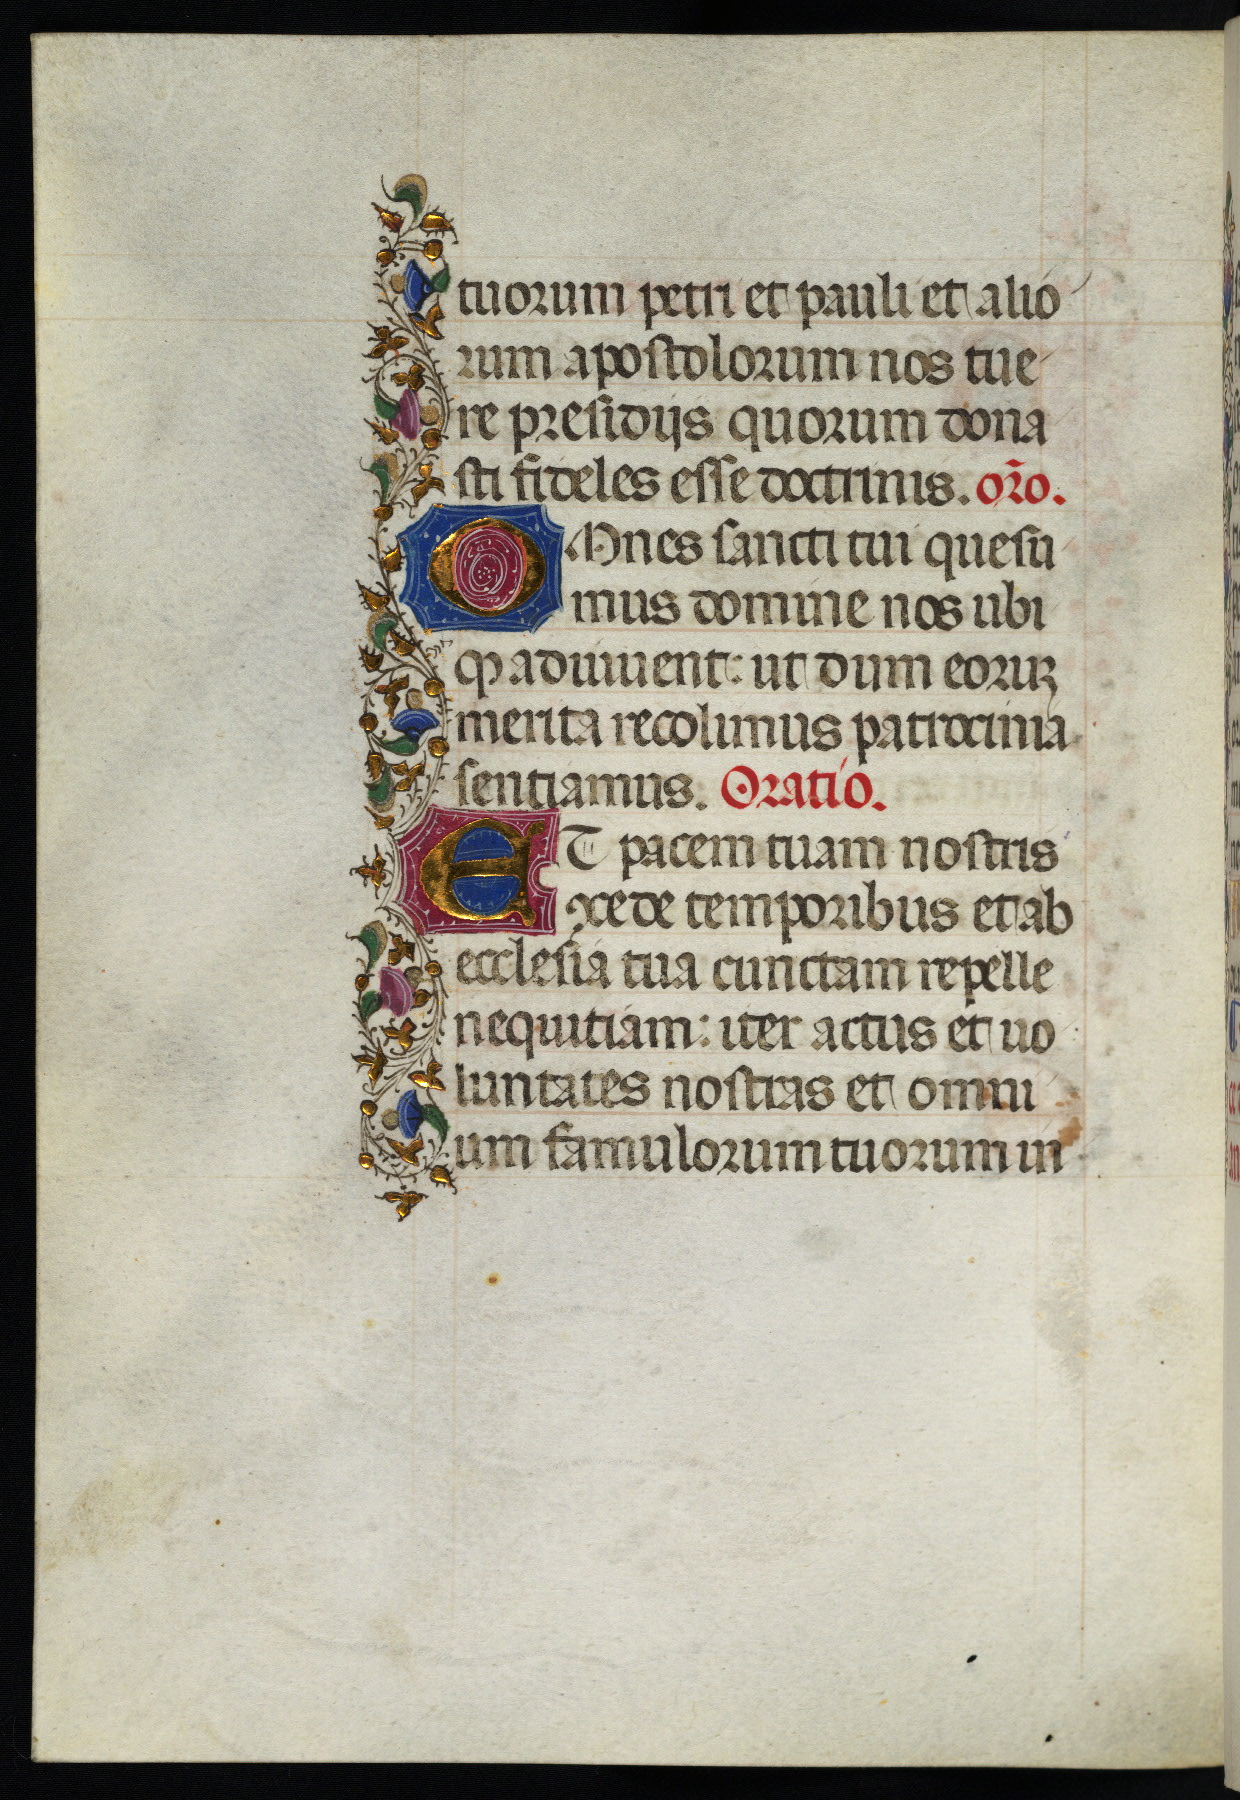 tuorum petri et pauli et alio
rum apostolorum nos tue
re presidijs quorum dona
sti fideles esse doctrinis. or̄o.
OMnes sancti tui quesu
mus domine nos ubi
qꝫ adiuuent: ut dum eoruꝝ
merita recolimus patrocinia
sentiamus. Oratio.
ET pacem tuam nostris
ꝯcede temporibus et ab
ecclesia tua cunctam repelle
nequitiam: iter actus et uo
luntates nostras et omni
um famulorum tuorum in